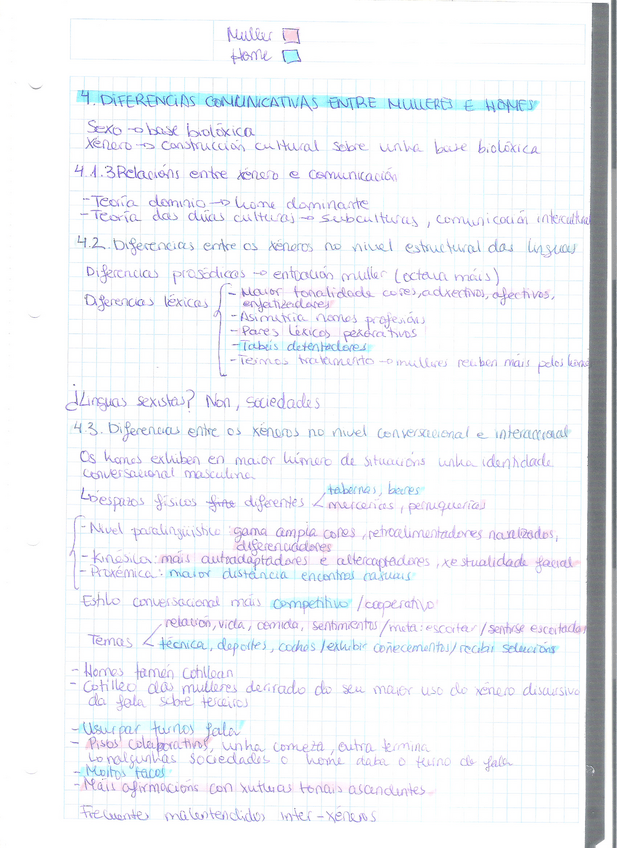 Muller
Home
4. DIFERENCIAS COMUNICATIVAS ENTRE MULLERES E HOMES
Sexo → base biolóxica
Xénero → construcción cultural sobre unha base biolóxica
4.1.3 Relacións entre xénero e comunicación
- Teoría dominio → home dominante
- Teoría das dúas culturas → subculturas, comunicación intercultural
4.2. Diferencias entre os xéneros no nivel estructural das linguas
Diferencias prosódicas → entoación muller (octava máis)
Diferencias léxicas
- Maior tonalidade cores, adxectivos, afectivos,
enfatizadores
- Asimetría nomes profesións
- Pares léxicos pexorativos
- Tabús detentadores
- Termos tratamento → mulleres reciben máis polos homes
¿Linguas sexistas? Non, sociedades
4.3. Diferencias entre os xéneros no nivel conversacional e interaccional
Os homes exhiben en maior número de situacións unha identidade
conversacional masculina
↳ espazos físicos diferentes
tabernas, bares
mercerías, perruquerías
- Nivel paralingüístico: gama ampla cores, retroalimentadores nasalizados,
diferenciadores
- Kinésica: máis autradaptadores e alteradaptadores, xestualidade facial
- Proxémica: maior distancia encontros casuais
Estilo conversacional máis competitivo / cooperativo
Temas
relación, vida, comida, sentimentos / meta: escoitar / sentirse escoitadas
técnica, deportes, coches / exhibir coñecementos / recibir solucións
- Homes tamén cotillean
- Cotilleo das mulleres derivado do seu maior uso do xénero discursivo
da fala sobre terceiros
- Usurpar turnos fala
- Pisos colaborativos, unha comeza, outra termina
↳ nalgunhas sociedades o home daba o turno de fala
- Moitos tacos
- Máis afirmacións con xunturas tonais ascendentes
Frecuentes malentendidos inter-xéneros